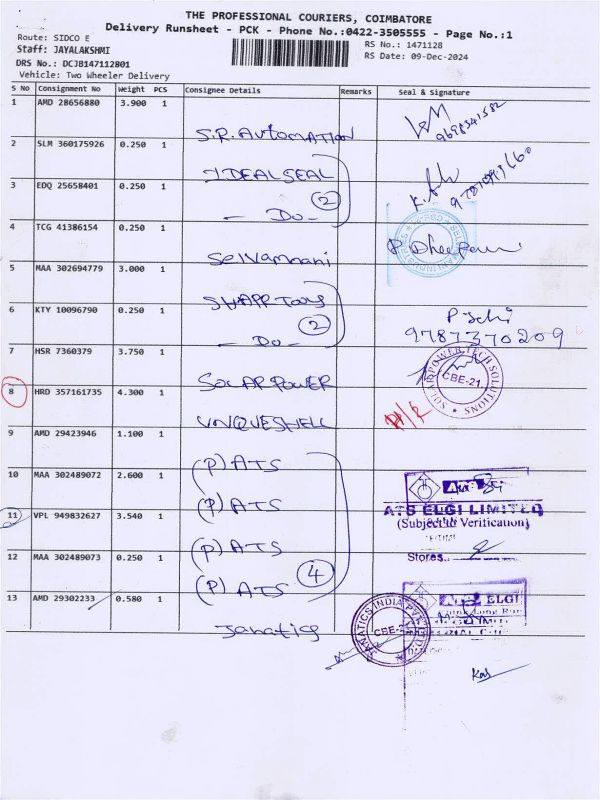 THE PROFESSIONAL COURIERS, COIMBATORE
Delivery Runsheet - PCK - Phone No.:0422-3505555 - Page No.:1
Route: SIDCO E
RS No.: 1471128
Staff: JAYALAKSHMI
RS Date: 09-Dec-2024
DRS No.: DCJB147112801
Vehicle: Two Wheeler Delivery
S No Consignment No Weight PCS Consignee Details Remarks Seal & Signature
1 AMD 28656880 3.900 1
S.R. AUTOMATION
2 SLM 360175926 0.250 1
IDEAL SEAL
3 EDQ 25658401 0.250 1
(2)
- Do -
4 TCG 41386154 0.250 1
Selvamnani
5 MAA 302694779 3.000 1
SHARP TOOLS
6 KTY 10096790 0.250 1
(2)
9787370209
- Do -
7 HSR 7360379 3.750 1
SOLAR POWER
SOLAR POWER TECH SOLUTIONS
CBE-21.
8 HRD 357161735 4.300 1
UNIQUESHELL
9 AMD 29423946 1.100 1
(P) ATS
10 MAA 302489072 2.600 1
(P) ATS
ATS ELGI LIMITED
(Subject to Verification)
11 VPL 949832627 3.540 1
(P) ATS
Stores..
12 MAA 302489073 0.250 1
(4)
(P) ATS
13 AMD 29302233 0.580 1
ELGI
Janatics
JANATICS INDIA PVT LTD